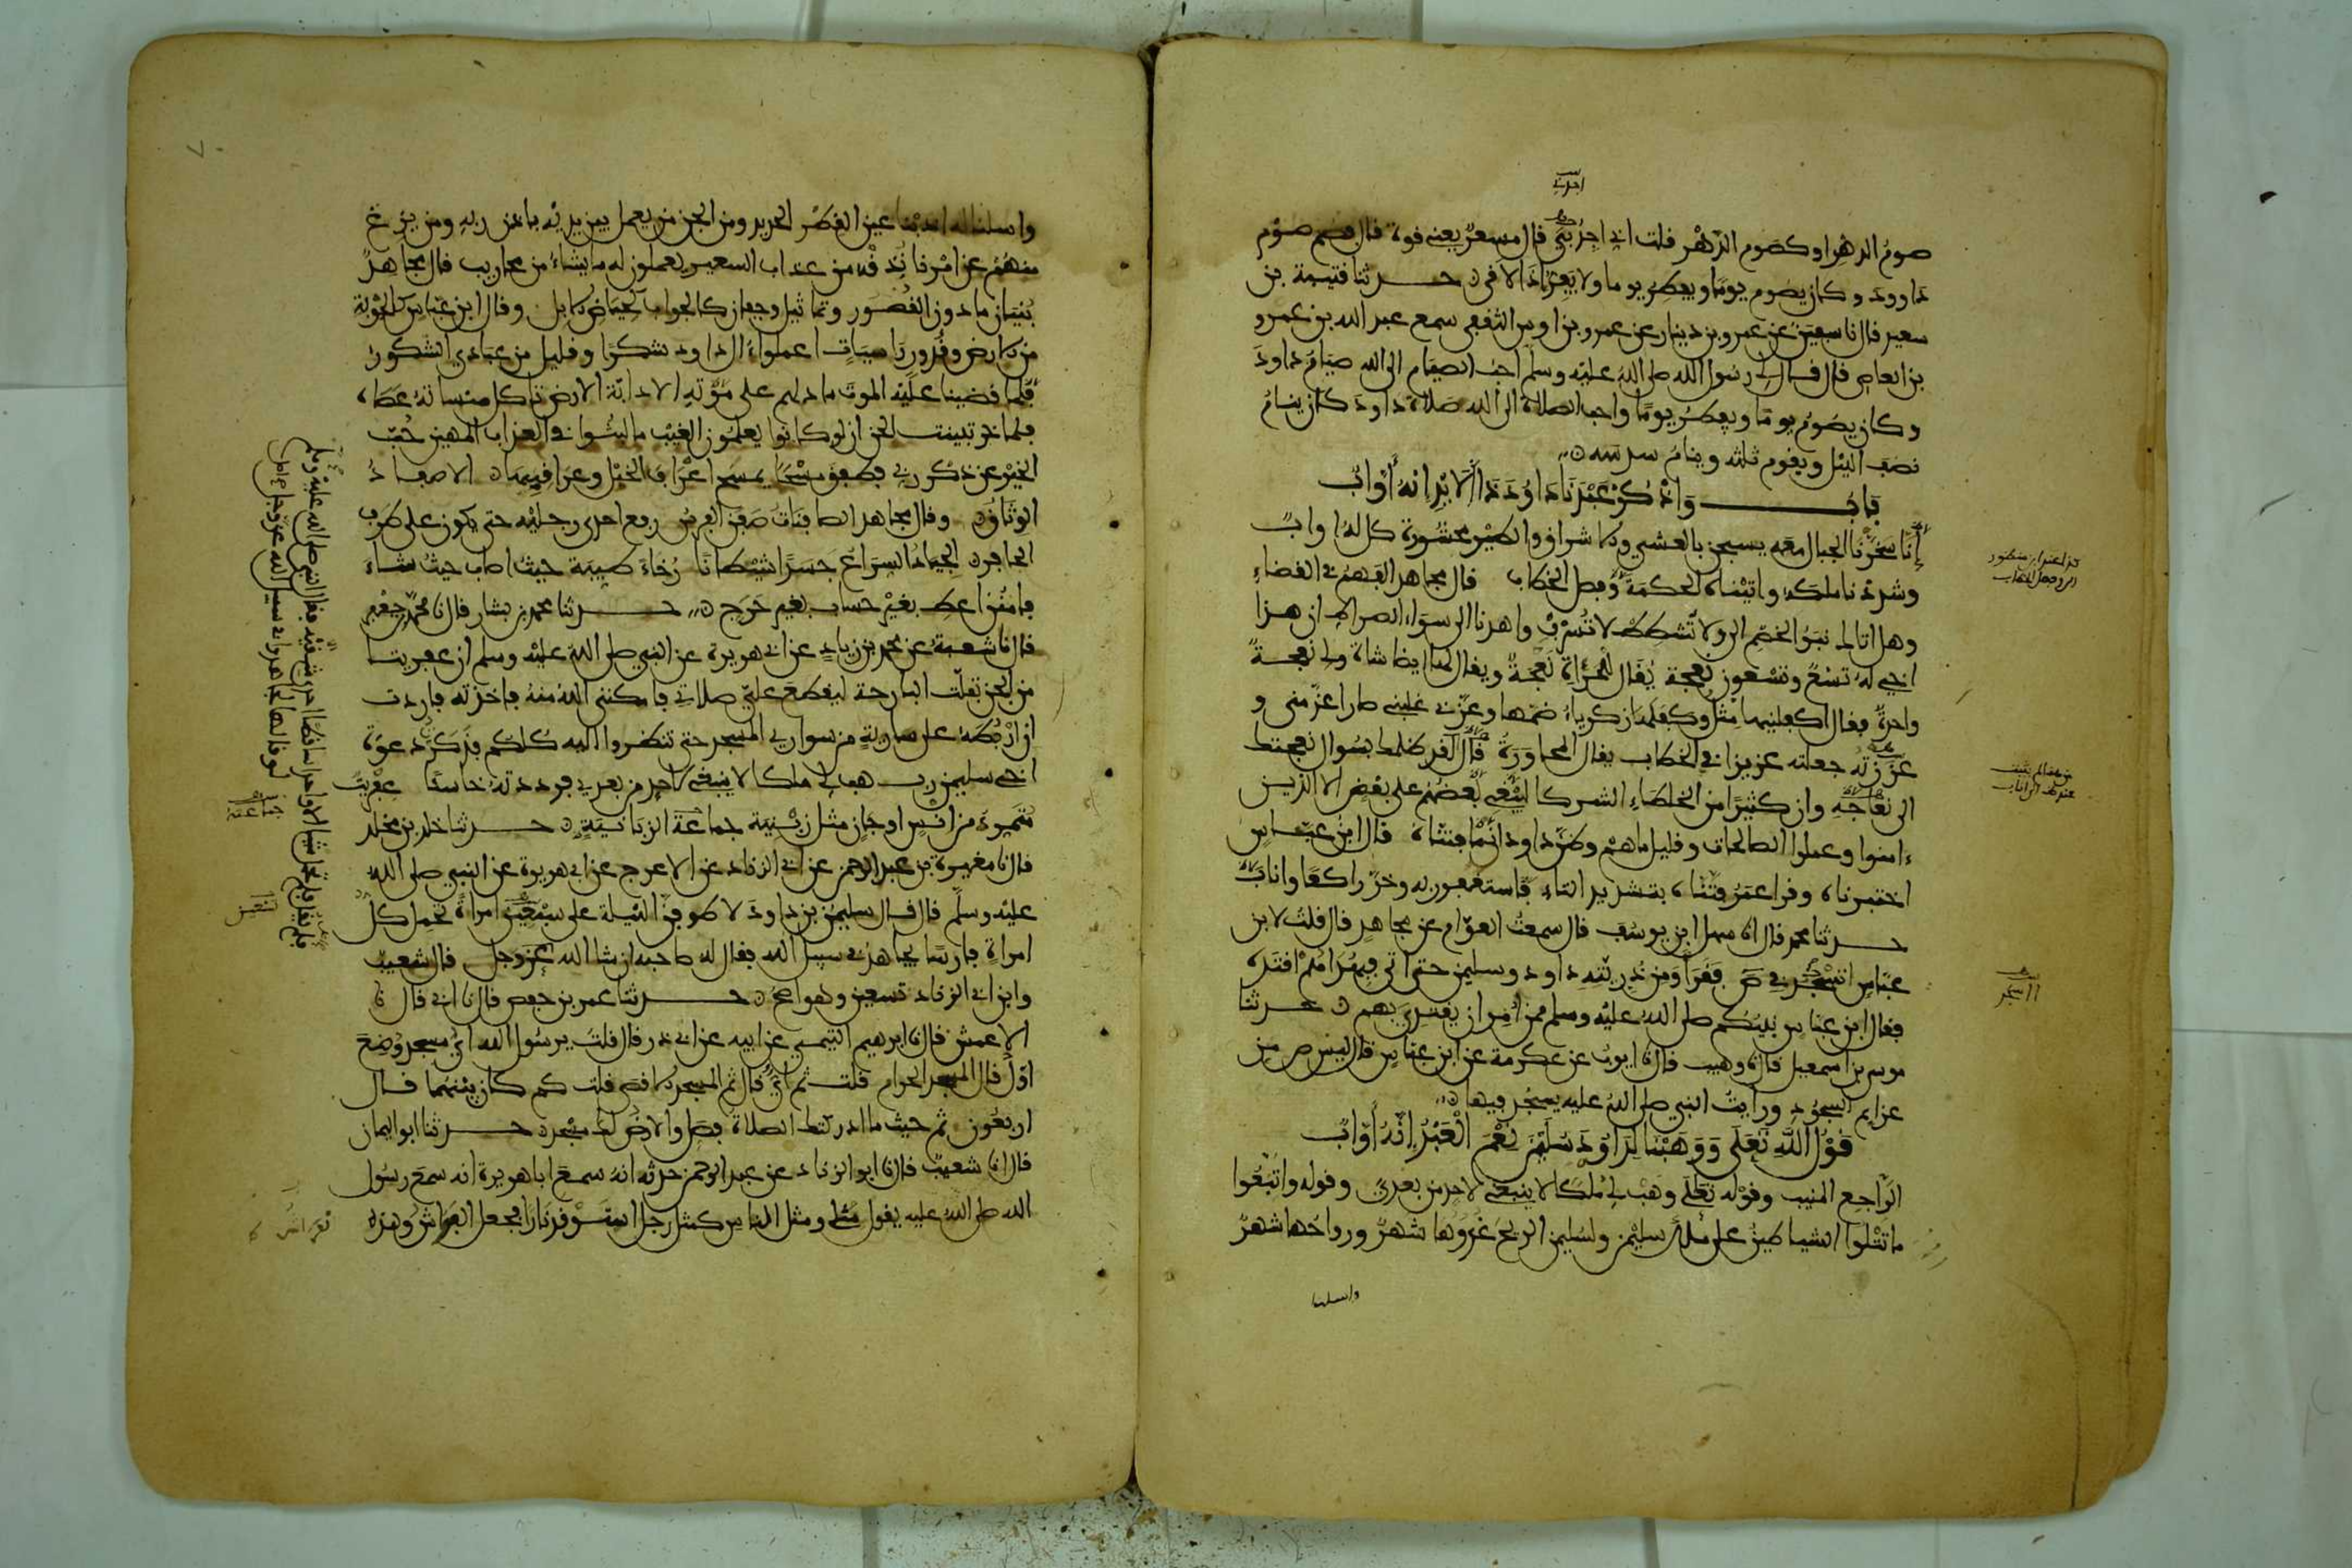 صوم الدهر او كصوم الدهر قلت اني اجدني قال مسعر يعني قوة قال فصم صوم
داوود وكان يصوم يوما ويفطر يوما ولا يفر اذا لاقى حدثنا قتيبة بن
سعيد قال نا سفين عن عمرو بن دينار عن عمرو بن اوس الثقفي سمع عبد الله بن عمرو
بن العاص قال قال لي رسول الله صلى الله عليه وسلم احب الصيام الى الله صيام داود
وكان يصوم يوما ويفطر يوما واحب الصلاة الى الله صلاة داود كان ينام
نصف اليل ويقوم ثلثه وينام سدسه
باب واذكر عبدنا داود ذا الايد انه أواب
إنا سخرنا الجبال معه يسبحن بالعشي والاشراق والطير محشورة كل له اواب
وشددنا ملكه واتيناه الحكمة وفصل الخطاب قال مجاهد الفهم في القضاء
وهل اتاك نبؤ الخصم الى ولا تشطط لا تسرف واهدنا الى سواء الصراط ان هذا
اخي له تسع وتسعون نعجة يقال للمرأة نعجة ويقال لها ايضا شاة ولي نعجة
واحدة فقال اكفلنيها مثل وكفلها زكرياء ضمها وعزني غلبني صار اعز مني و
عززته جعلته عزيزا في الخطاب يقال المحاورة قال لقد ظلمك بسوال نعجتك
الى نعاجه وان كثيرا من الخلطاء الشركا ليبغي بعضهم على بعض الا الذين
ءامنوا وعملوا الصالحات وقليل ماهم وظن داود انما فتناه قال ابن عباس
اختبرناه وقرا عمر فتناه بتشديد التاء فاستغفر ربه وخر راكعا واناب
حدثنا محمد قال نا سهل ابن يوسف قال سمعت العوام عن مجاهد قال قلت لابن
عباس انسجد في ص فقرأ ومن ذريته داود وسليمن حتى اتى فبهداهم اقتده
فقال ابن عباس نبيكم صلى الله عليه وسلم ممن أمر ان يقتدي بهم حدثنا
موسى بن اسمعيل قال نا وهيب قال نا ايوب عن عكرمة عن ابن عباس قال ليس ص من
عزايم السجود ورايت النبي صلى الله عليه يسجد فيها
قول الله تعلى ووهبنا لداود سليمن نعم العبد إنه أواب
الراجع المنيب وقوله تعلى وهب لي ملكا لا ينبغي لاحد من بعدي وقوله واتبعوا
ما تتلوا الشياطين على ملك سليمن ولسليمن الريح غدوها شهر ورواحها شهر
واسلنا
واسلنا له اذبنا عين القطر الحديد ومن الجن من يعمل بين يديه باذن ربه ومن يزغ
منهم عن امرنا نذقه من عذاب السعير يعملون له ما يشاء من محاريب قال مجاهد
بنيان ما دون القصور وتماثيل وجفان كالجواب كحياض الابل وقال ابن عباس كالجوبة
من الارض وقدور راسيات اعملوا ءال داود شكرا وقليل من عبادي الشكور
فلما قضينا عليه الموت ما دلهم على موته الا دابة الارض تاكل منساته عصاه
فلما خر تبينت الجن ان لو كانوا يعلمون الغيب ما لبثوا في العذاب المهين حب
الخير عن ذكر ربي فطفق مسحا يمسح اعراف الخيل وعراقيبها الاصفاد
الوثاق وقال مجاهد الصافنات صفن الفرس رفع احدى رجليه حتى يكون على طرف
الحافر الجياد السراع جسدا شيطانا رخاء طيبة حيث اصاب حيث شاء
فامنن اعط بغير حساب بغير حرج حدثنا محمد بن بشار قال نا محمد بن جعفر
قال نا شعبة عن محمد بن زياد عن ابي هريرة عن النبي صلى الله عليه وسلم ان عفريتا
من الجن تفلت البارحة ليقطع علي صلاتي فامكنني الله منه فاخذته فاردت
ان اربطه على سارية من سواري المسجد حتى تنظروا اليه كلكم فذكرت دعوة
اخي سليمن رب هب لي ملكا لا ينبغي لاحد من بعدي فرددته خاسئا عفريت
متمرد من انس او جان مثل زبنية جماعة الزبانية حدثنا خالد بن مخلد
قال نا مغيرة بن عبد الرحمن عن ابي الزناد عن الاعرج عن ابي هريرة عن النبي صلى الله
عليه وسلم قال قال سليمن بن داود لاطوفن الليلة على سبعين امراة تحمل كل
امراة فارسا يجاهد في سبيل الله فقال له صاحبه ان شا الله عز وجل قال شعيب
وابن ابي الزناد تسعين وهو اصح حدثنا عمر بن حفص قال نا ابي قال نا
الاعمش قال نا ابرهيم التيمي عن ابيه عن ابي ذر قال قلت يرسول الله اي مسجد وضع
اول قال المسجد الحرام قلت ثم اي قال ثم المسجد الاقصى قلت كم كان بينهما قال
اربعون ثم حيث ما ادركتك الصلاة فصل والارض لك مسجد حدثنا ابو اليمان
قال انا شعيب قال نا ابو الزناد عن عبد الرحمن حدثه انه سمع ابا هريرة انه سمع رسول
الله صلى الله عليه يقول مثلي ومثل الناس كمثل رجل استوقد نارا فجعل الفراش وهذه
فلم يقل فلم تحمل شيا الا واحدا ساقطا احدى شقيه فقال النبي صلى الله عليه وسلم
لو قالها لجاهدوا في سبيل الله